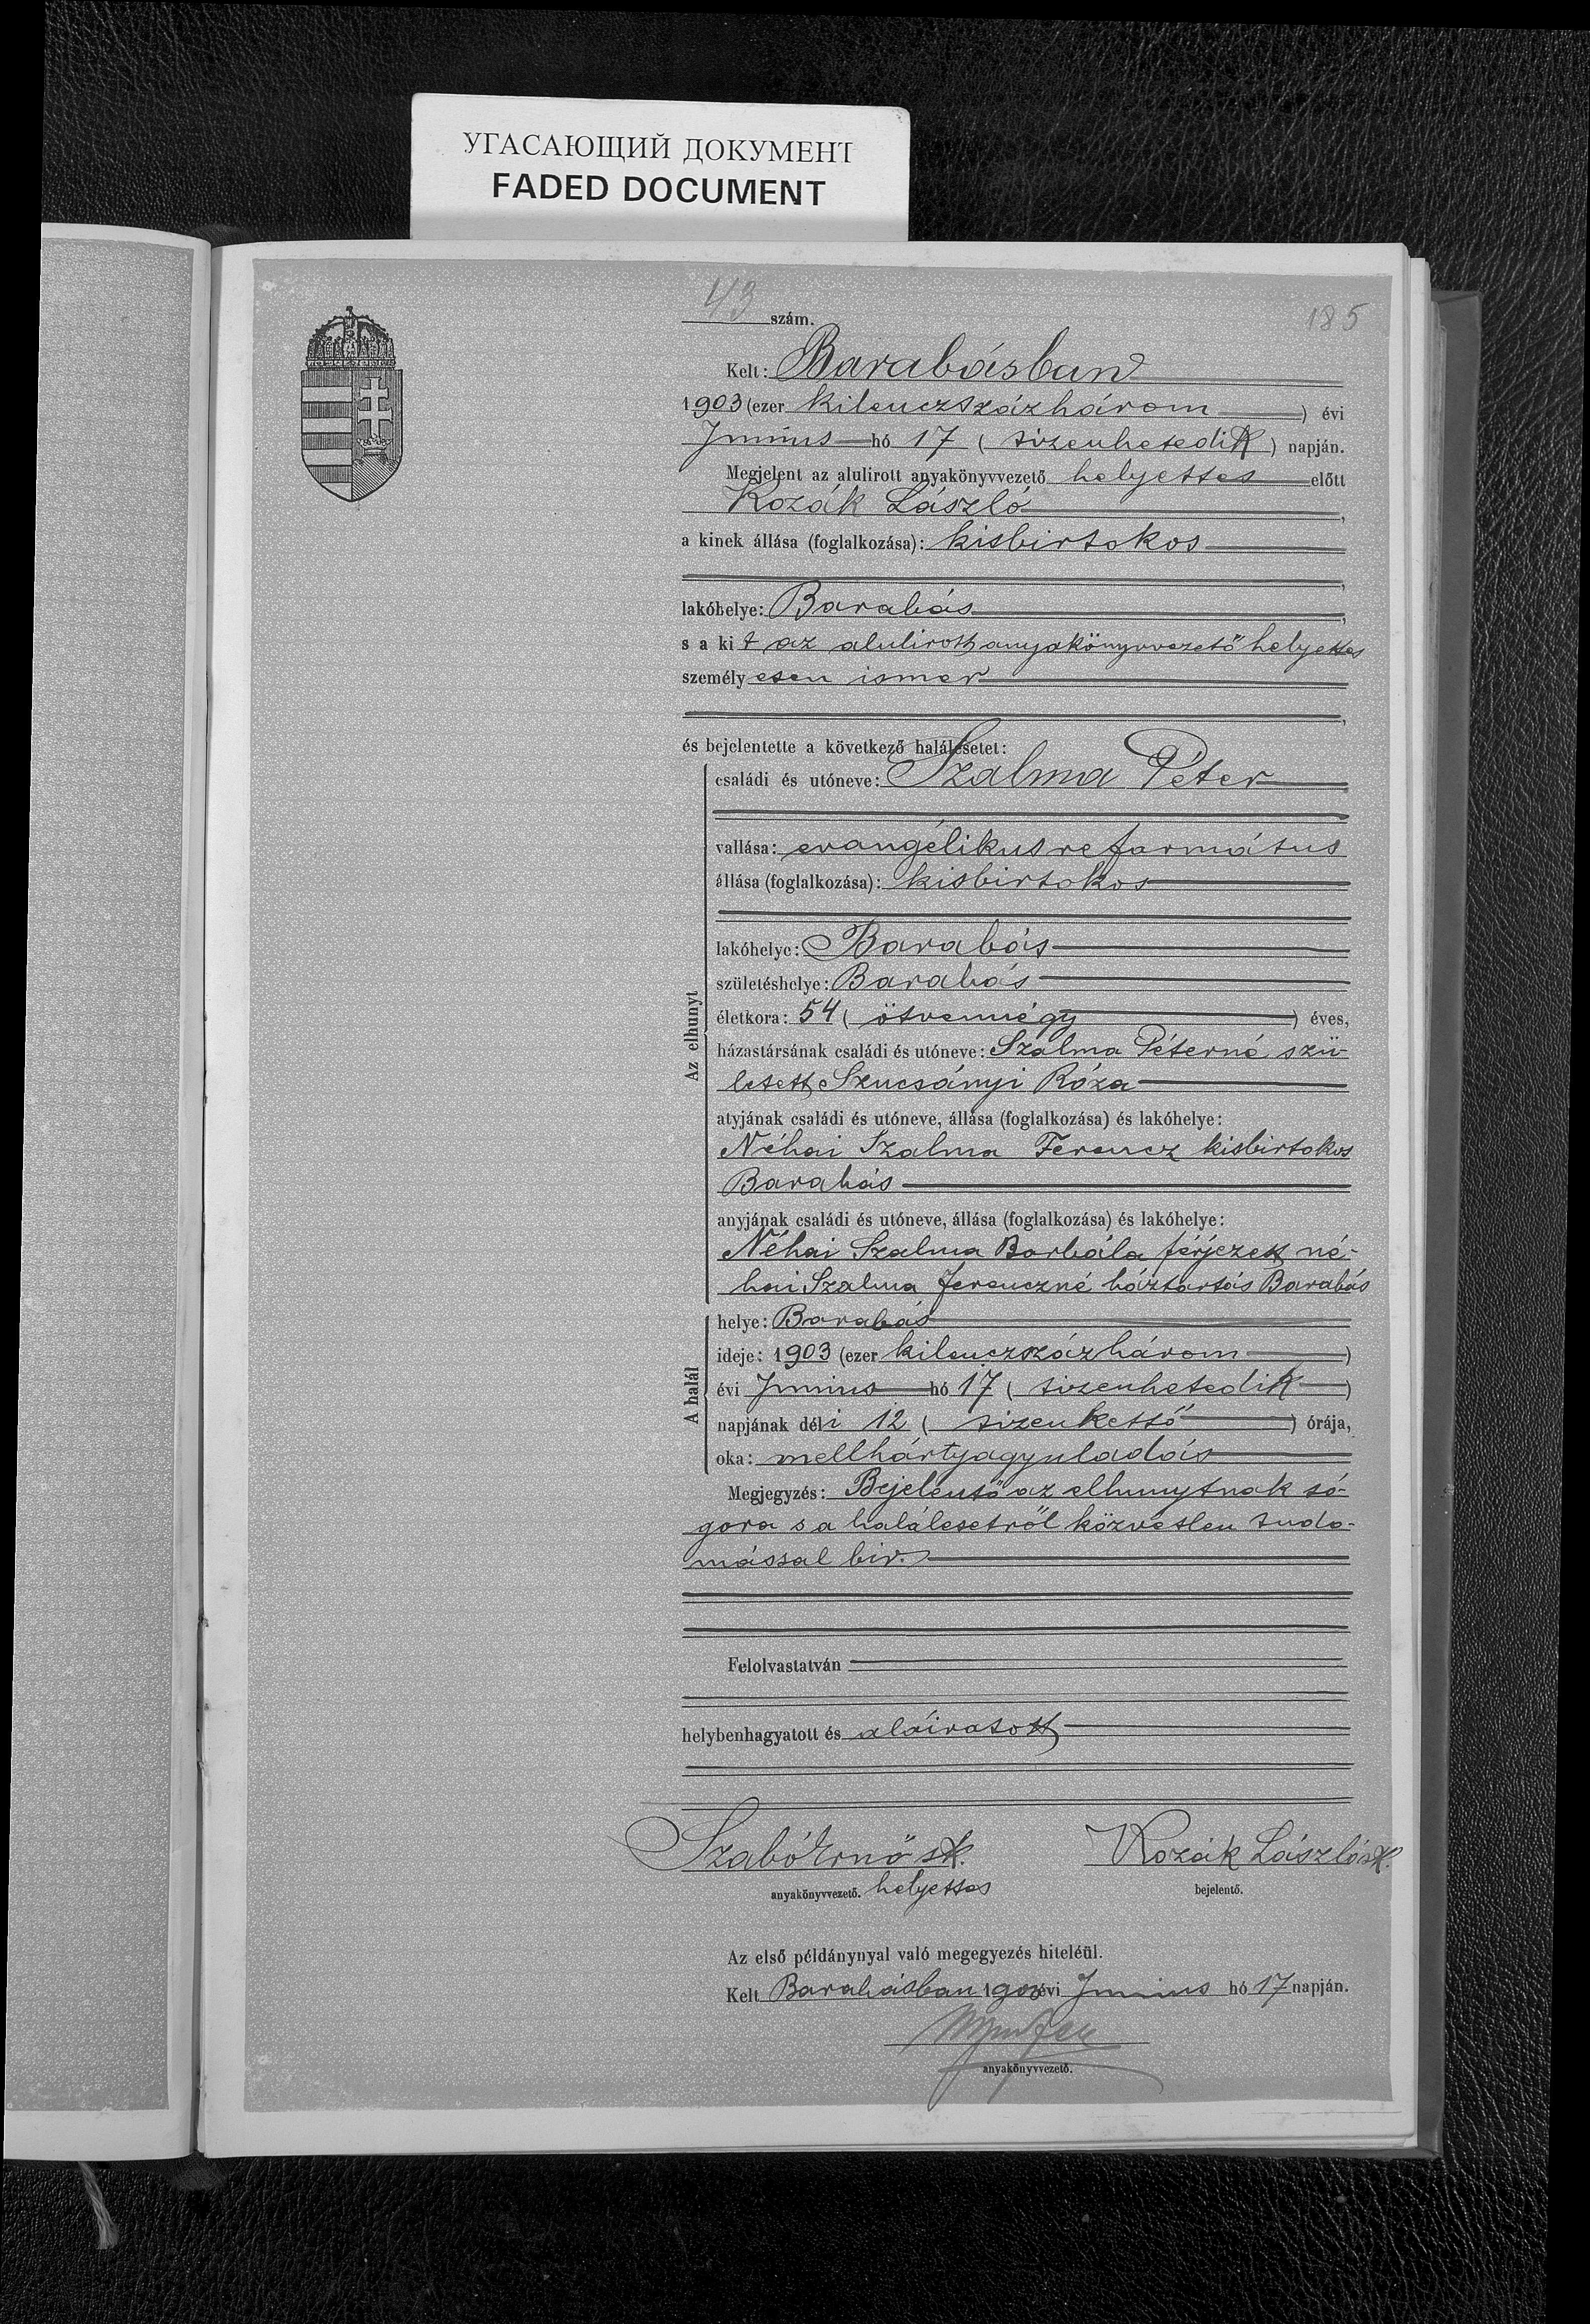 УГАСАЮЩИЙ ДОКУМЕНТ
FADED DOCUMENT
43 szám.
185
Kelt: Barabásban
1903 (ezer kilenczszázhárom) évi
Junius hó 17 (tizenhetedik) napján.
Megjelent az alulirott anyakönyvvezető helyettes előtt
Kozák László,
a kinek állása (foglalkozása): kisbirtokos
,
lakóhelye: Barabás,
s a kit az alulirott anyakönyvvezető helyettes
személyesen ismer
,
és bejelentette a következő halálesetet:
Az elhunyt
családi és utóneve: Szalma Péter
vallása: evangélikus református
állása (foglalkozása): kisbirtokos
lakóhelye: Barabás
születéshelye: Barabás
életkora: 54 (ötvennégy) éves,
házastársának családi és utóneve: Szalma Péterné szü-
letett Szucsányi Róza
atyjának családi és utóneve, állása (foglalkozása) és lakóhelye:
Néhai Szalma Ferencz kisbirtokos
Barabás
anyjának családi és utóneve, állása (foglalkozása) és lakóhelye:
Néhai Szalma Borbála férjezett né-
hai Szalma Ferenczné háztartás Barabás
A halál
helye: Barabás
ideje: 1903 (ezer kilenczszázhárom)
évi Junius hó 17 (tizenhetedik)
napjának déli 12 (tizenkettő) órája,
oka: mellhártyagyuladás
Megjegyzés: Bejelentő az elhunytnak só-
gora s a halálesetről közvetlen tudo-
mással bir.
Felolvastatván
helybenhagyatott és aláiratott
Szabó Ernő sk. Kozák László sk.
anyakönyvvezető. helyettes bejelentő.
Az első példánynyal való megegyezés hiteléül.
Kelt Barabásban 1903 évi Junius hó 17 napján.
anyakönyvvezető.